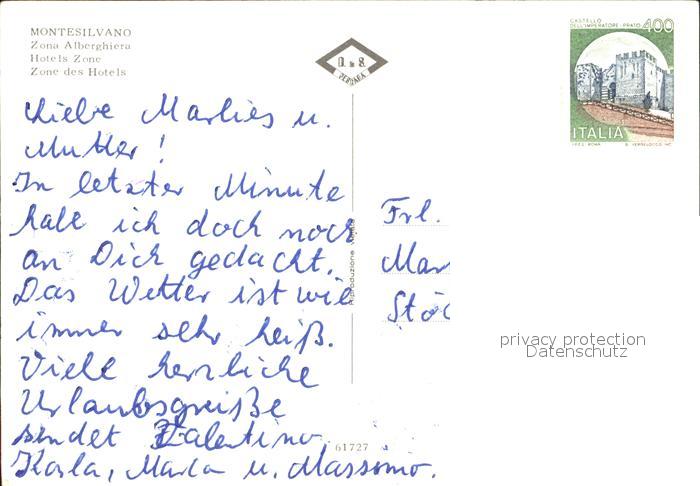 MONTESILVANO
Zona Alberghiera
Hotels Zone
Zone des Hotels
CASTELLO
DELL'IMPERATORE - PRATO 400
ITALIA
Liebe Marlies u.
Mutter!
In letzter Minute
habe ich doch noch
an Dich gedacht.
Das Wetter ist wie
immer sehr heiß.
Viele herzliche
Urlaubsgreiße
sendet Valentino,
Karla, Marla u. Massomo.
Frl.
Mar
Stöc
Riproduzione vietata
61727
privacy protection
Datenschutz